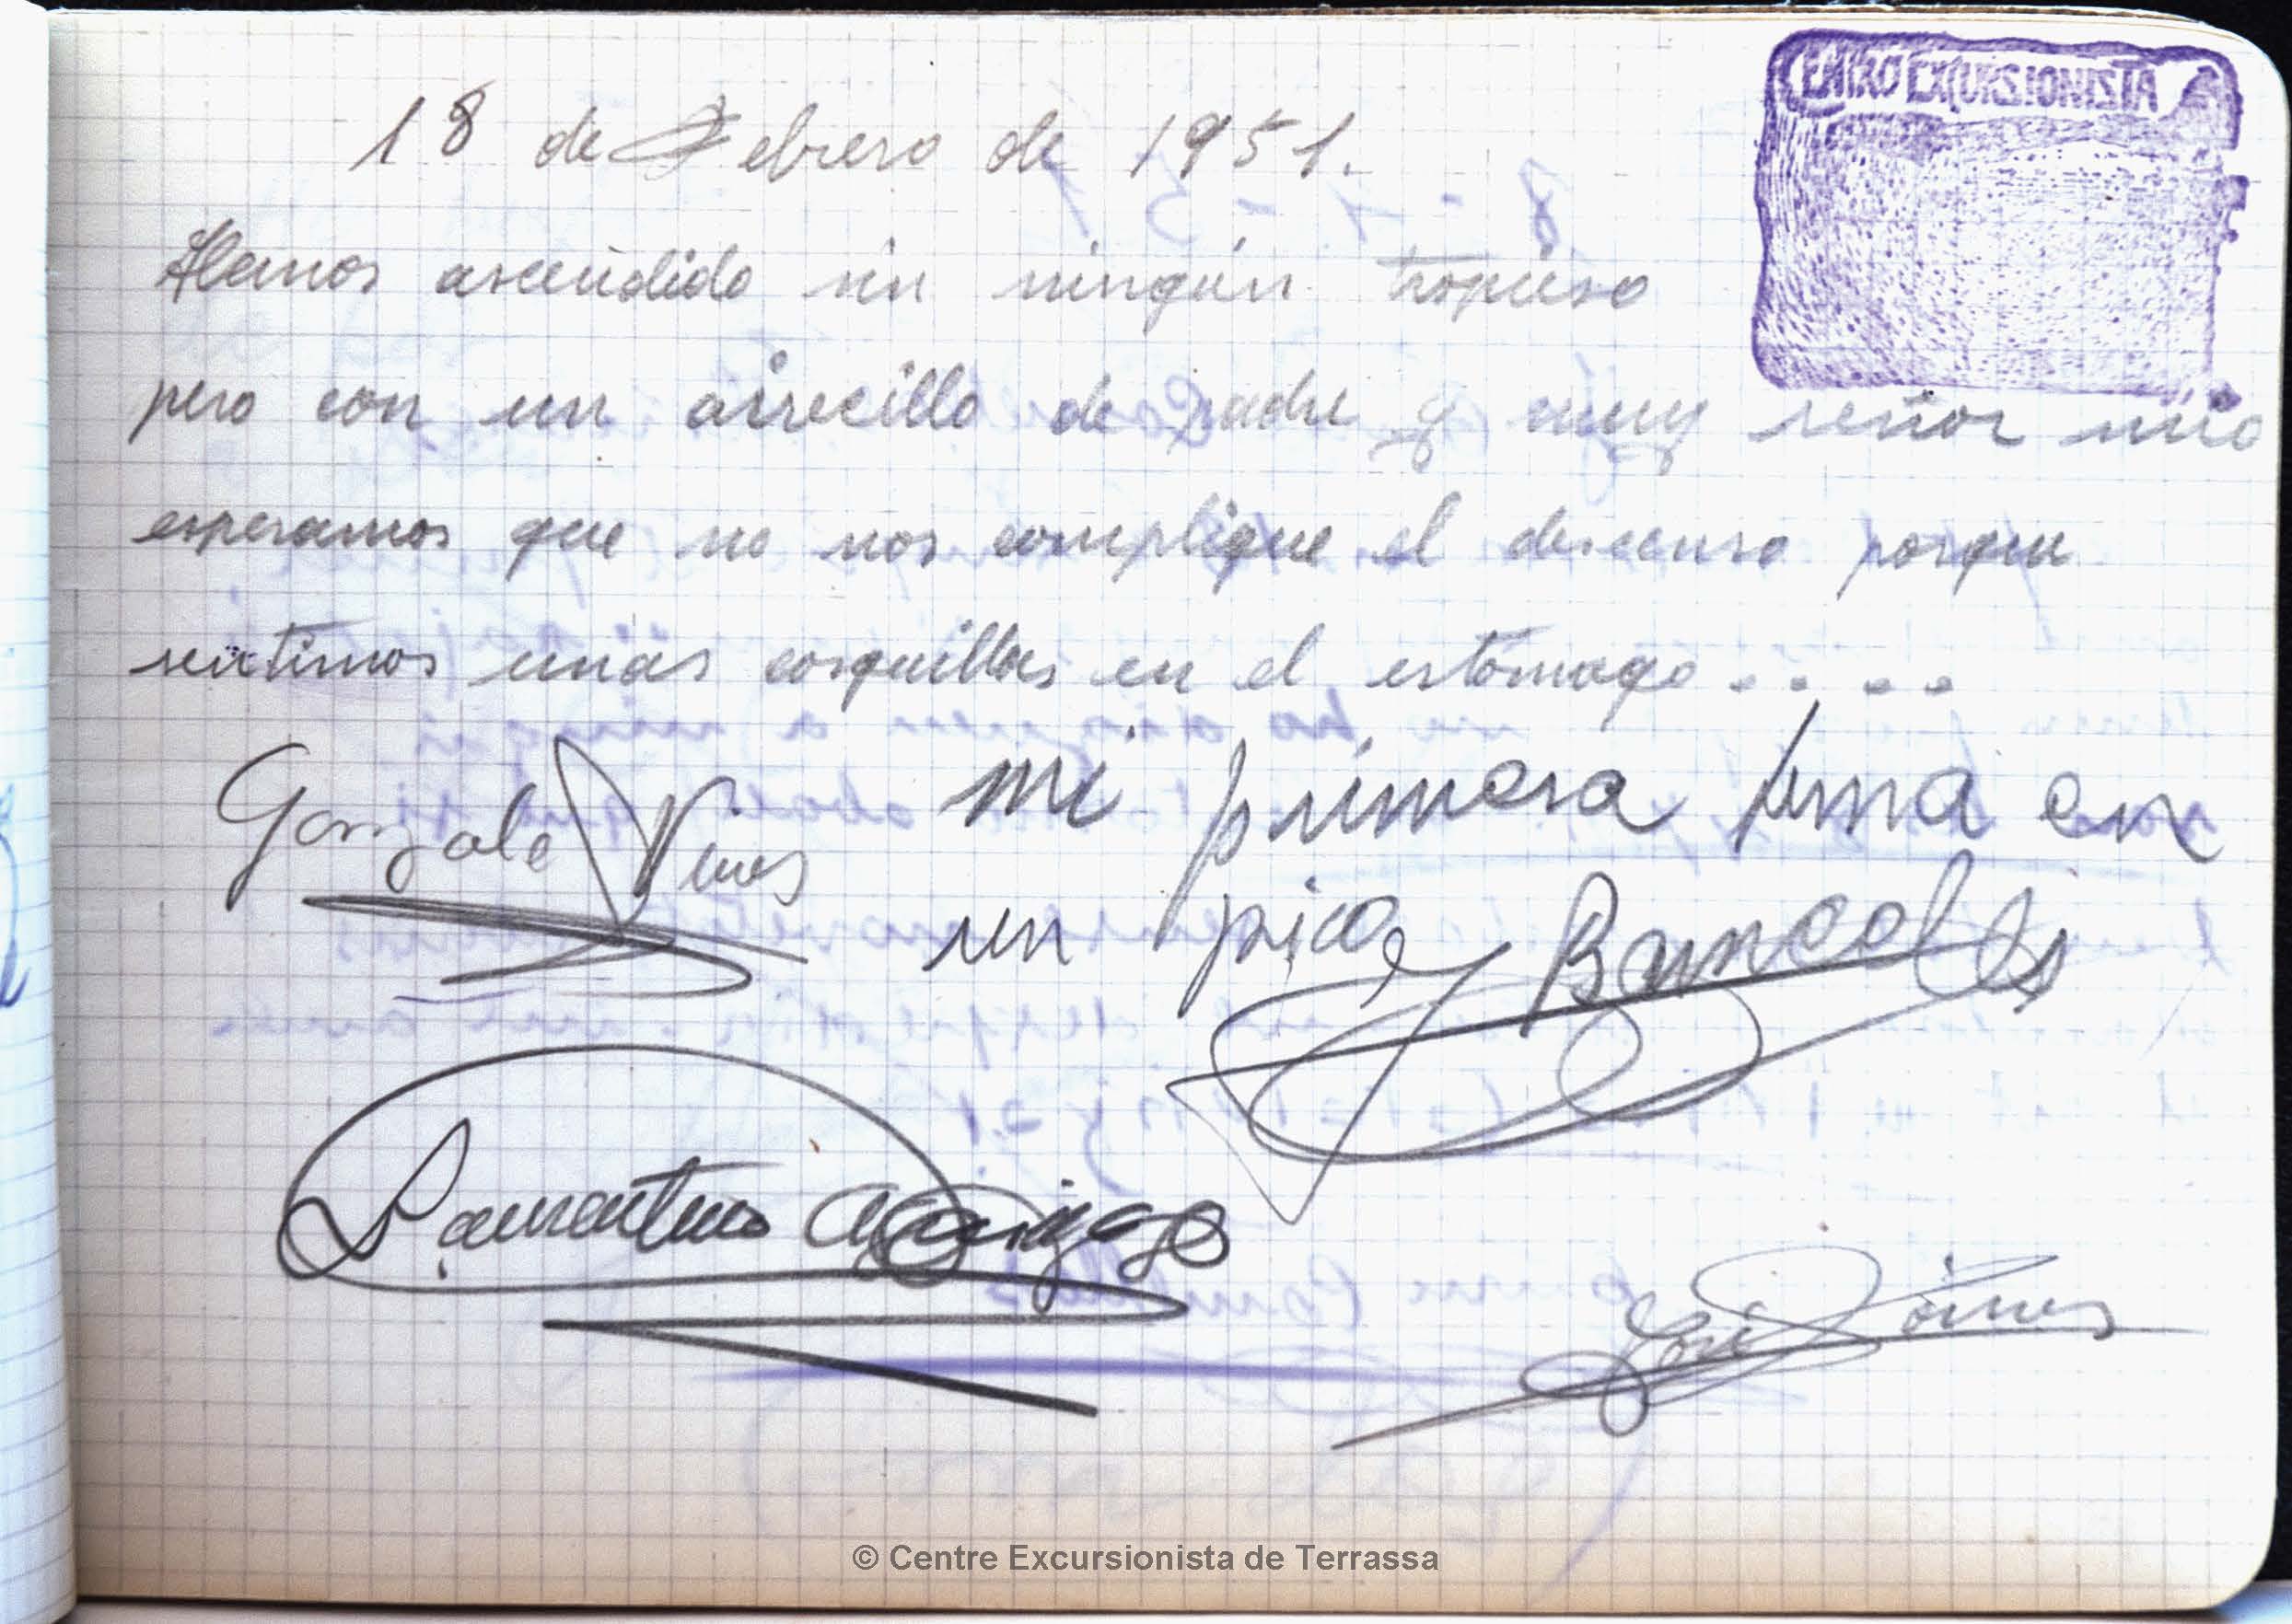 CENTRO EXCURSIONISTA
18 de Febrero de 1951.
Hemos ascendido sin ningún tropieso
pero con un airecillo de padre y muy señor mio
esperamos que no nos complique el descenso porque
sentimos unas cosquillas en el estómago....
mi primera firma en
un pico
Gonzalo Vives
J Bancells
José Gómes
© Centre Excursionista de Terrassa